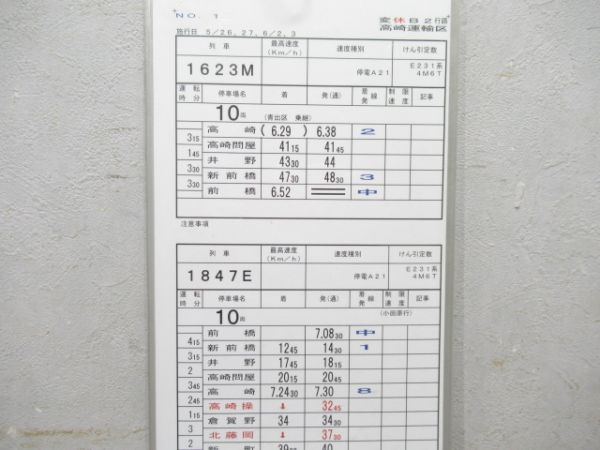 NO. 1 変休B2行路
施行日 5/26, 27, 6/2, 3 高崎運輸区
列車 最高速度(Km/h) 速度種別 けん引定数
1623M 停電A21 E231系 4M6T
運転時分 停車場名 着 発(通) 着発線 制限速度 記事
10両 (青出区 乗継)
高崎 (6.29) 6.38 2
3 15 高崎問屋 41 15 41 45
1 45 井野 43 30 44
3 30 新前橋 47 30 48 30 3
3 30 前橋 6.52 中
注意事項
列車 最高速度(Km/h) 速度種別 けん引定数
1847E 停電A21 E231系 4M6T
運転時分 停車場名 着 発(通) 着発線 制限速度 記事
10両 (小田原行)
前橋 7.08 30 中
4 15 新前橋 12 45 14 30 1
3 15 井野 17 45 18 15
2 高崎問屋 20 15 20 45
3 45 高崎 7.24 30 7.30 8
2 45 高崎操 ↓ 32 45
1 15 倉賀野 34 34 30
3 北藤岡 ↓ 37 30
2 新町 39 30 40